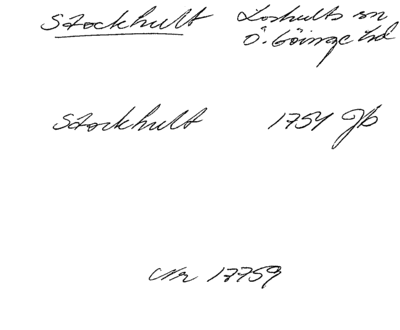 Stockhult Loshults sn
Ö. Göinge hd
Stockhult 1754 Jb
Nr 17759